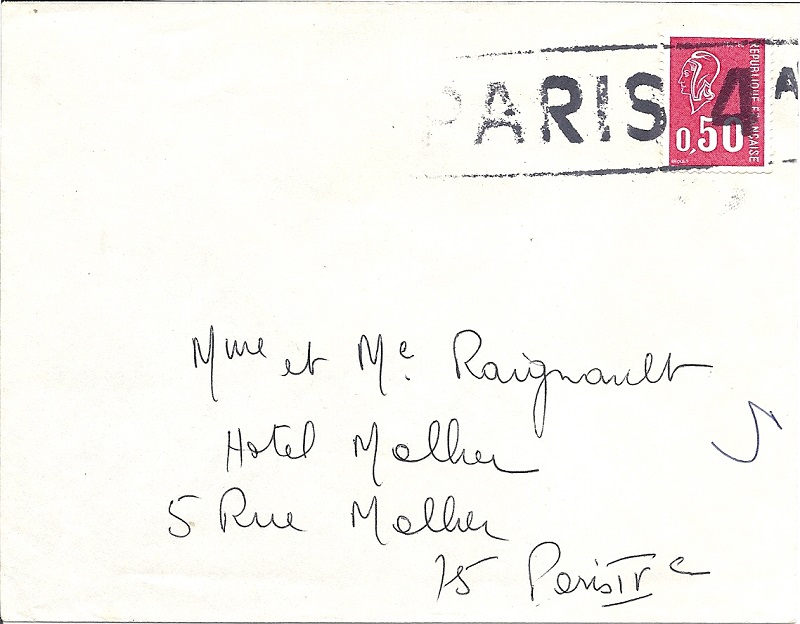 PARIS 4 A
REPUBLIQUE FRANÇAISE
0,50
Mme et Me. Raignault
Hotel Malher
5 Rue Malher
75 Paris IVe